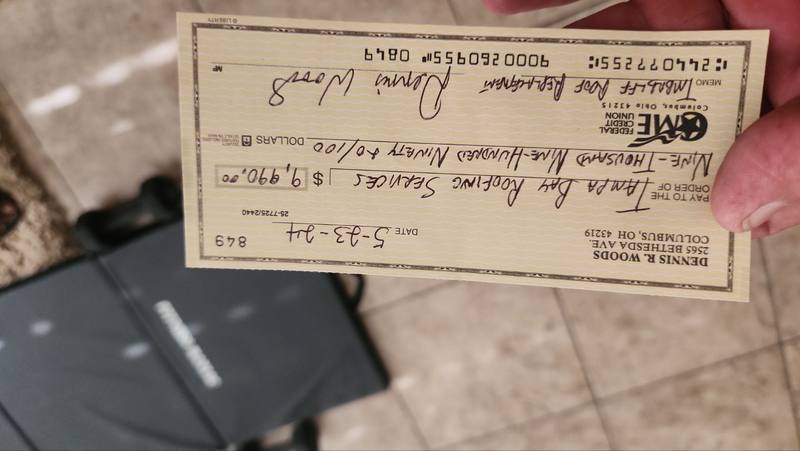 DENNIS R. WOODS
2565 BETHESDA AVE.
COLUMBUS, OH 43219
849
DATE 5-23-24
25-7725/2440
PAY TO THE ORDER OF TAMPA BAY ROOFING SERVICES $ 9,990.00
NINE-THOUSAND NINE-HUNDRED NINETY +0/100 DOLLARS
CME FEDERAL CREDIT UNION
Columbus, Ohio 43215
MEMO ROOF REPLACEMENT Dennis Woods MP
⑆244077255⑆ 9000260955⑈ 0849
© LIBERTY